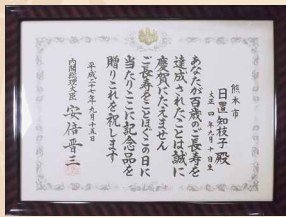 熊本市
日置知枝子殿
大正四年九月十日生
あなたが百歳のご長寿を
達成されたことは誠に
慶賀にたえません
ご長寿をことほぐこの日に
当たりここに記念品を
贈りこれを祝します
平成二十七年九月十五日
内閣総理大臣 安倍晋三